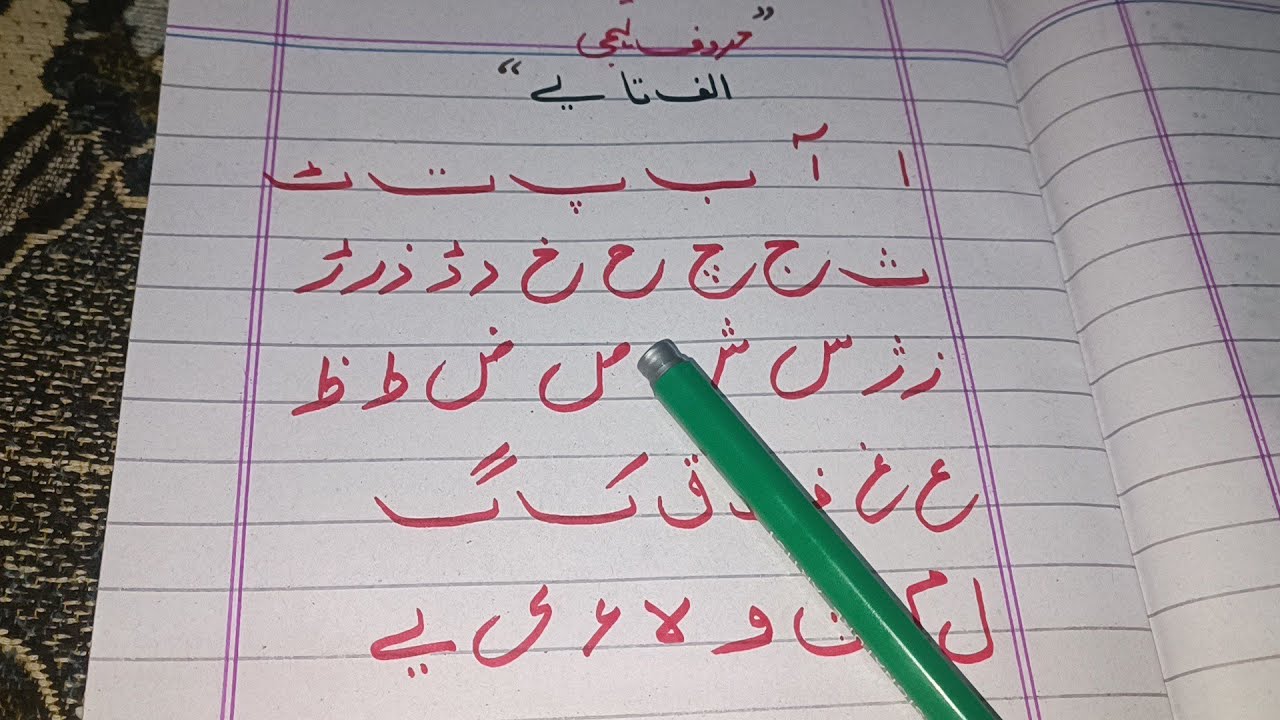 ”حروف تہجی
الف تا یے“
ا آ ب پ ت ٹ
ث ج چ ح خ د ڈ ذ ر ڑ
ز ژ س ش ص ض ط ظ
ع غ ف ق ک گ
ل م ن و ہ ء ی ے